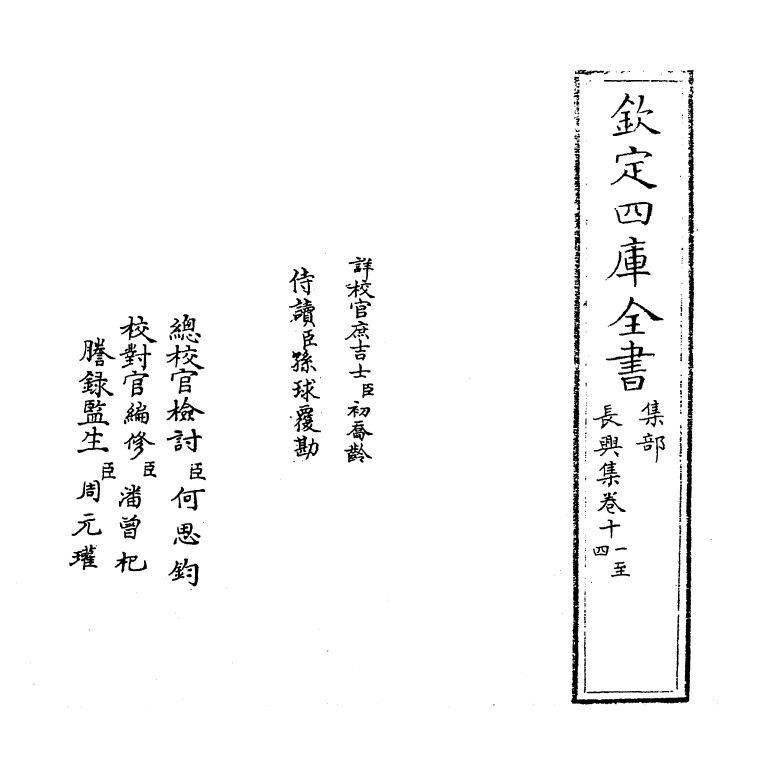 欽定四庫全書
集部
長興集卷十一至
四
詳校官庶吉士臣初喬齡
侍讀臣孫球覆勘
總校官檢討臣何思鈞
校對官編修臣潘曾𣏌
謄録監生臣周元瓘